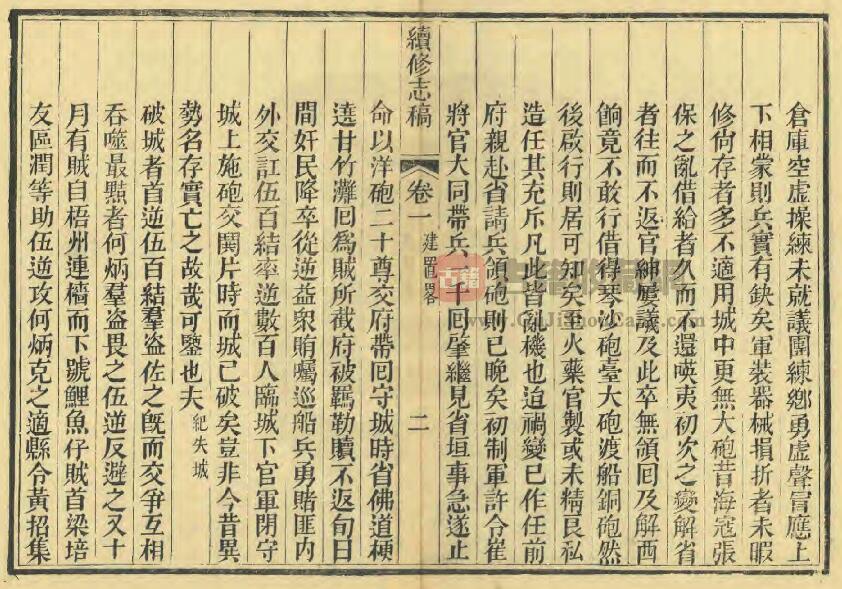 倉庫空虛操練未就議團練鄉勇虛聲冒應上
下相蒙則兵實有缺矣軍裝器械損折者未暇
修尙存者多不適用城中更無大砲昔海寇張
保之亂借給者久而不還暎夷初次之變解省
者往而不返官紳屢議及此卒無領囘及解西
餉竟不敢行借得琴沙砲臺大砲渡船銅砲然
後啟行則居可知矣至火藥官製或未精良私
造任其充斥凡此皆亂機也迨禍變已作任前
府親赴省請兵領砲則已晚矣初制軍許令崔
將官大同帶兵一千囘肇繼見省垣事急遂止
續修志稿 卷一 建置畧 二
命以洋砲二十尊交府帶囘守城時省佛道梗
遶甘竹灘囘爲賊所截府被羈勒贖不返旬日
間奸民降卒從逆益衆賄囑巡船兵勇賭匪內
外交訌伍百結率逆數百人臨城下官軍閉守
城上施砲交閧片時而城已破矣豈非今昔異
勢名存實亡之故哉可鑒也夫 紀失城
破城者首逆伍百結羣盜佐之旣而交爭互相
吞噬最黠者何炳羣盜畏之伍逆反避之又十
月有賊自梧州連檣而下號鯉魚仔賊首梁培
友區潤等助伍逆攻何炳克之適縣令黃招集